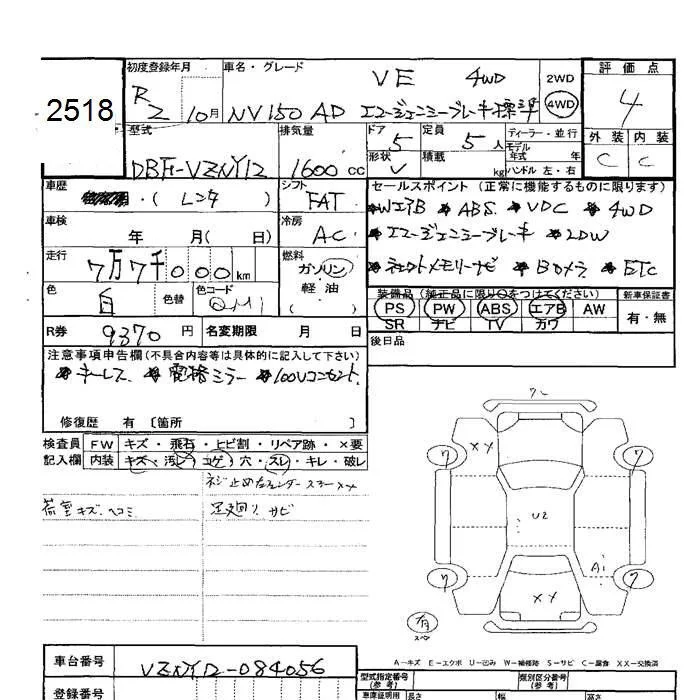 2518
初度登録年月
R2 10月
車名・グレード
VE 4WD
NV150 AD エマージェンシーブレーキ標準
2WD
4WD
評価点
4
外装 内装
C C
型式
DBF-VZNY12
排気量
1600 cc
ドア
5
定員
5人
形状
V
積載
kg
ディーラー・並行
モデル
年式 年
ハンドル 左・右
車歴
・( レンタ )
シフト
FAT
車検
年 月( 日)
冷房
AC
走行
7万7千000km
燃料
ガソリン・
軽油
( )
色
白
色替
色コード
QM1
セールスポイント (正常に機能するものに限ります)
*WエアB *ABS *VDC *4WD
*エマージェンシーブレーキ *LDW
*ネェクトメモリーナビ *Bカメラ *ETC
装備品(純正品に限り○をつけてください)
PS PW ABS エアB AW
SR ナビ TV カワ
新車保証書
有・無
R券 9370円
名変期限 月 日
後日品
注意事項申告欄(不具合内容等は具体的に記入して下さい)
*キーレス *電格ミラー *100Vコンセント
修復歴 有 〔箇所 〕
検査員
記入欄
FW キズ・飛石・ヒビ割・リペア跡・×要
内装 キズ・汚レ・コゲ・穴・スレ・キレ・破レ
ネジ止め左フェンダー ステー××
荷室キズ、ヘコミ
足廻り サビ
ワレ
××
7
7
U2
A1
7
7
××
有
スペア
A-キズ E-エクボ U-凹み W-補修跡 S-サビ C-腐食 XX-交換済
車台番号
VZNY12-084056
登録番号
型式指定番号
(参考)
類別区分番号
(参考)
車庫証明用
長さ
幅
高さ